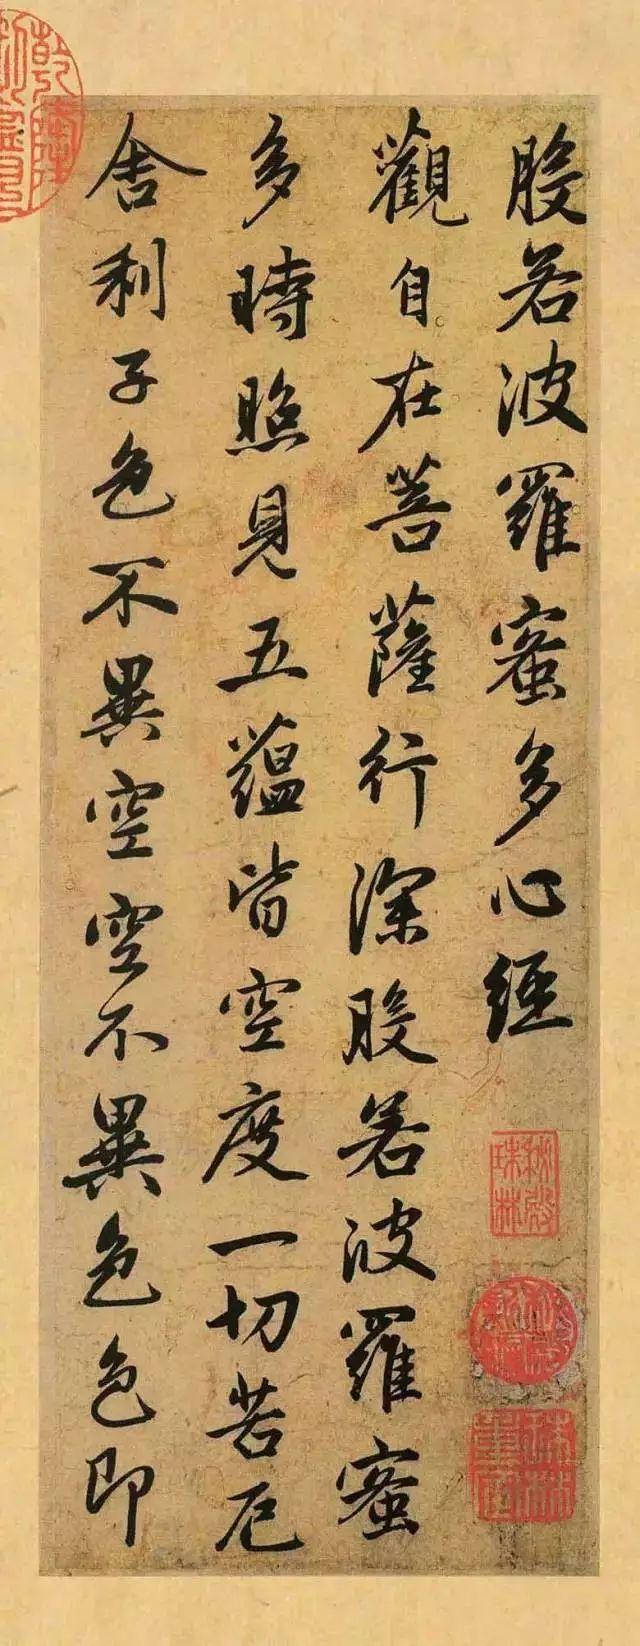 般若波羅蜜多心經
觀自在菩薩行深般若波羅蜜
多時照見五蘊皆空度一切苦厄
舍利子色不異空空不異色色即
秘殿珠林
珠林重定